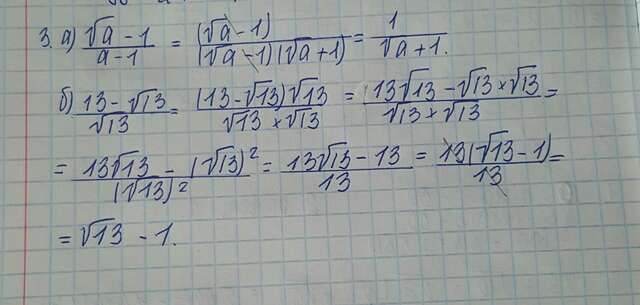 3. а) (√a - 1)/(a - 1) = (√a - 1)/((√a - 1)(√a + 1)) = 1/(√a + 1).
б) (13 - √13)/√13 = ((13 - √13)√13)/(√13 × √13) = (13√13 - √13 × √13)/(√13 × √13) =
= (13√13 - (√13)²)/(√13)² = (13√13 - 13)/13 = (13(√13 - 1))/13 =
= √13 - 1.